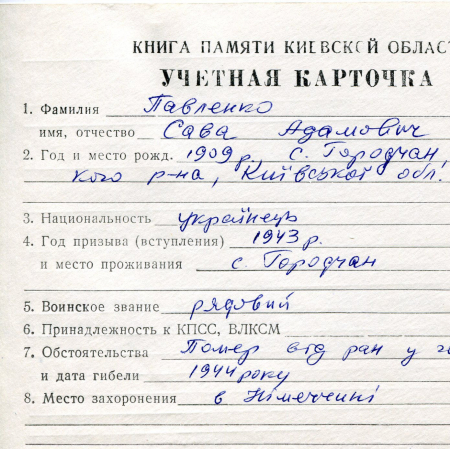 КНИГА ПАМЯТИ КИЕВСКОЙ ОБЛАС
УЧЕТНАЯ КАРТОЧКА
1. Фамилия Павленко
имя, отчество Сава Адамович
2. Год и место рожд. 1909 р., с. Городчан,
кого р-на, Київської обл.
3. Национальность українець
4. Год призыва (вступления) 1943 р.
и место проживания с. Городчан
5. Воинское звание рядовий
6. Принадлежность к КПСС, ВЛКСМ
7. Обстоятельства Помер від ран у
и дата гибели 1944 року
8. Место захоронения в Німеччині